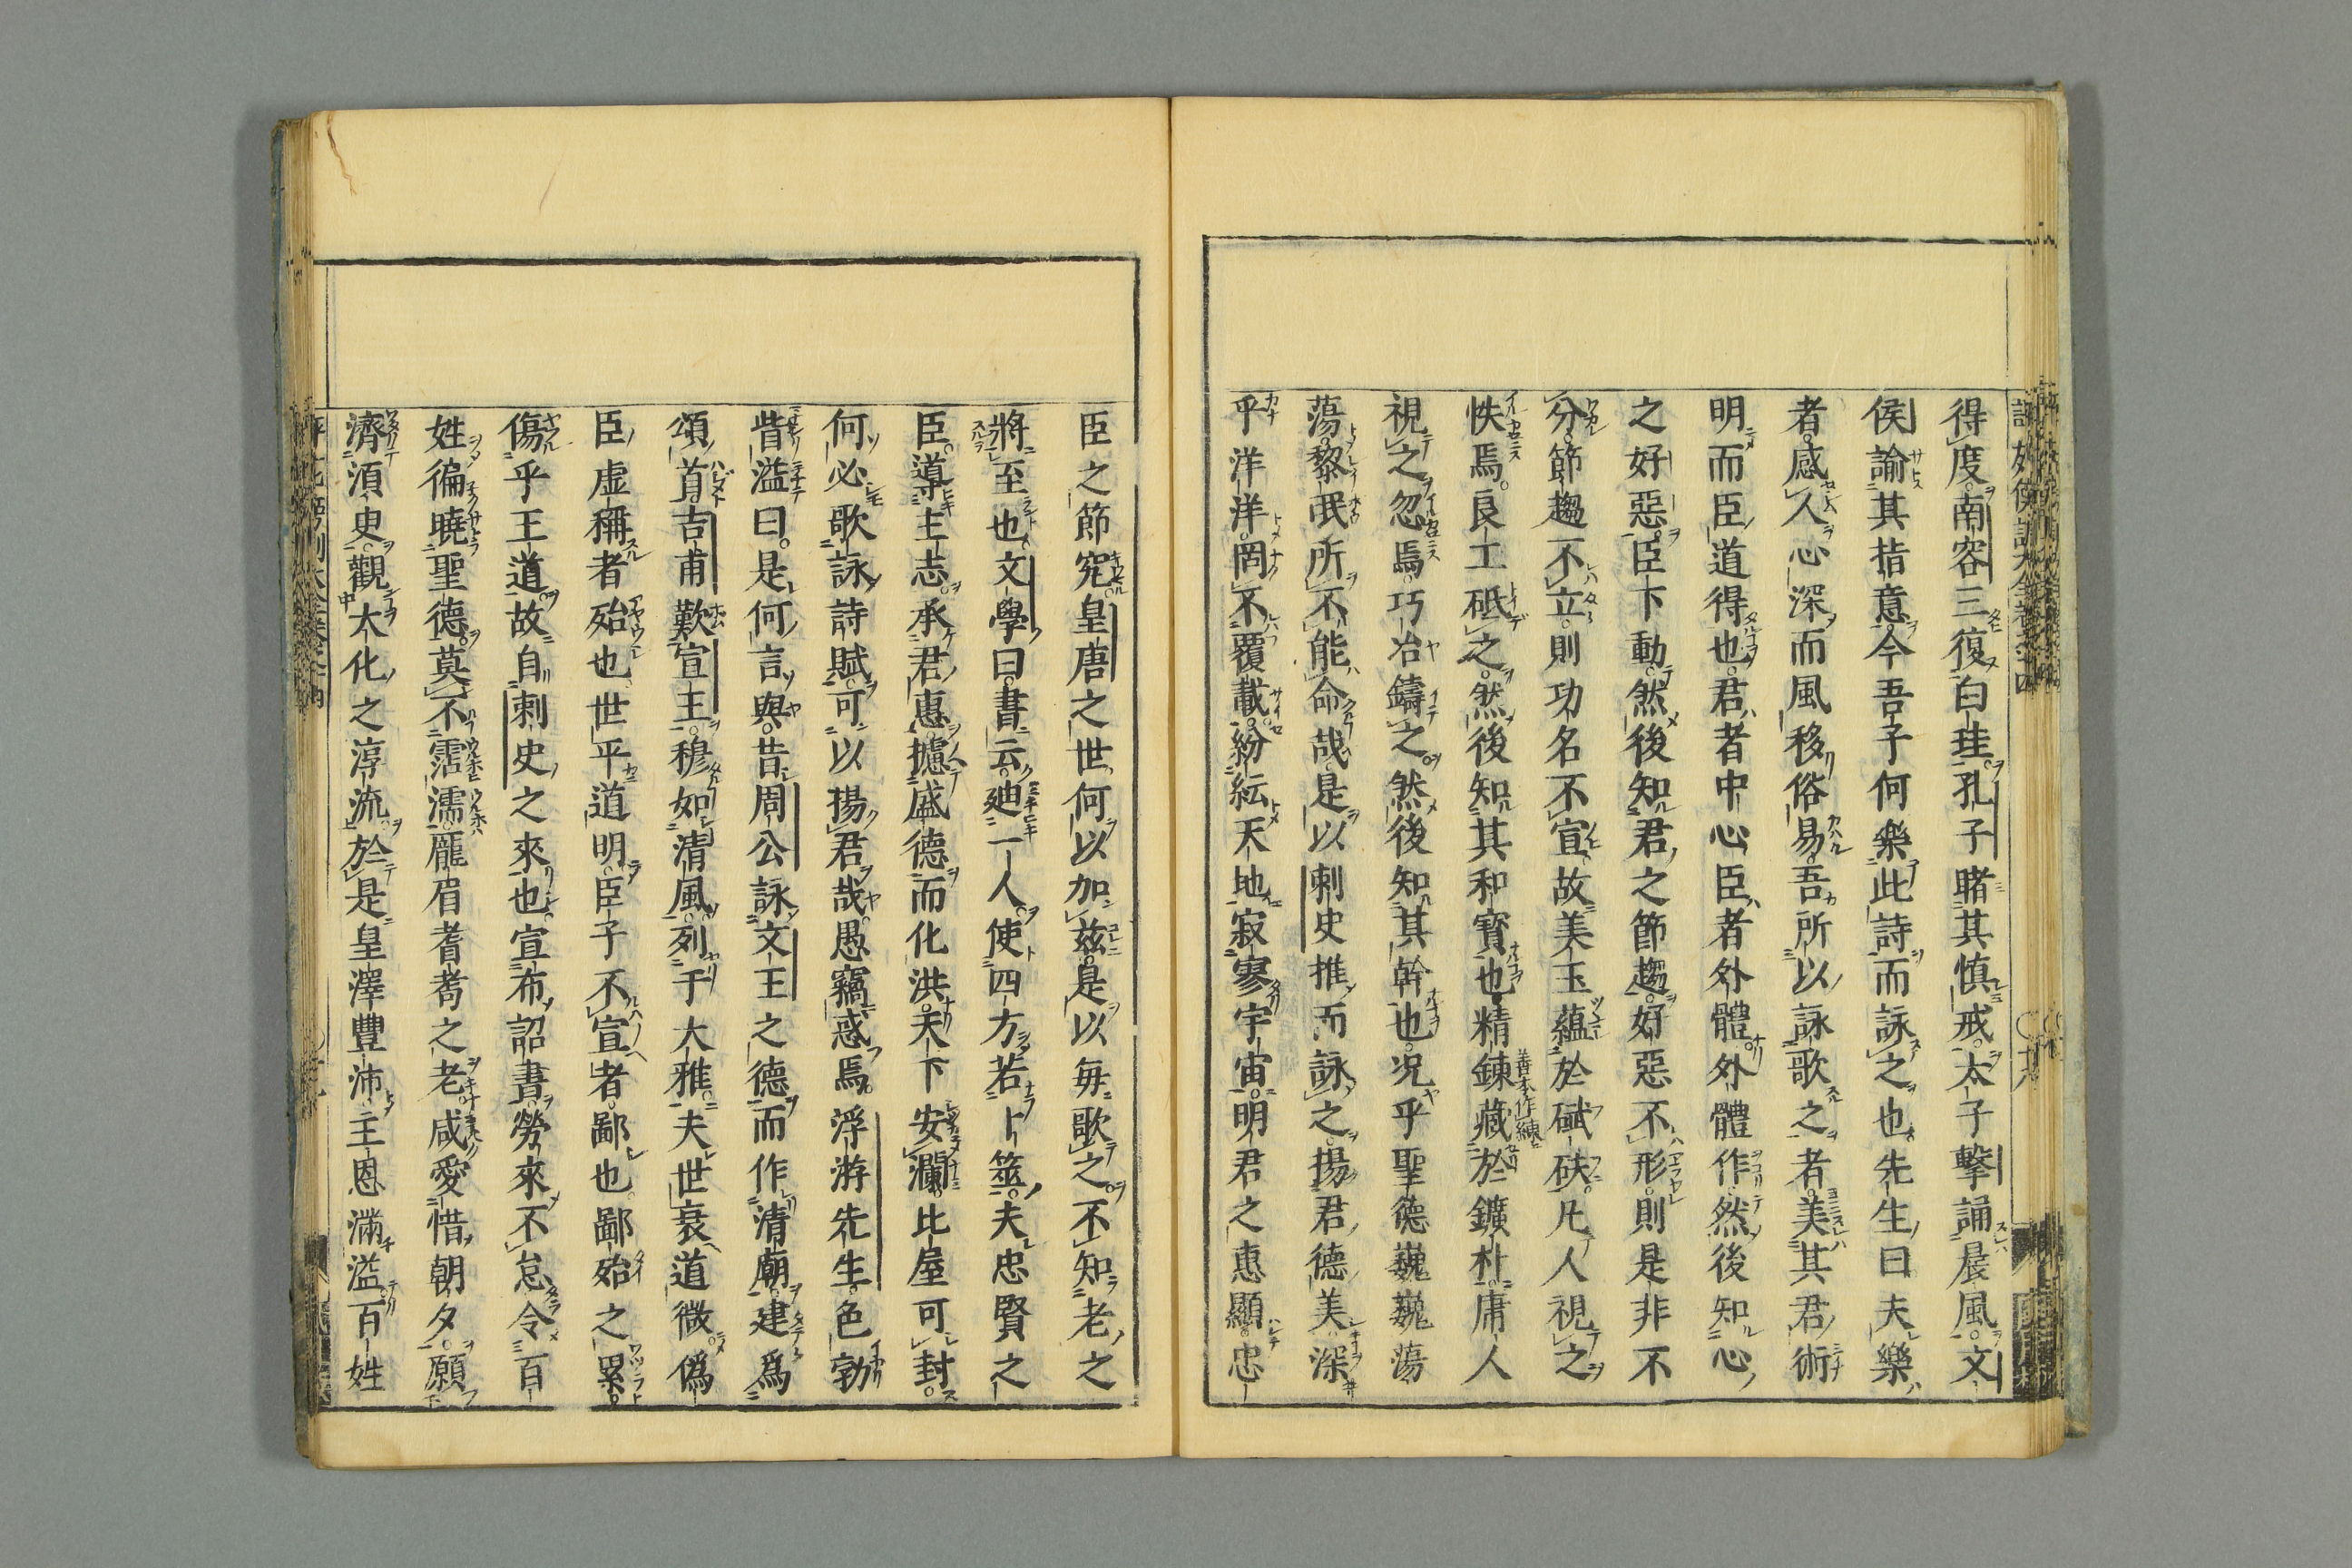 得度南容三復白珪孔子睹其慎戒太子擊誦晨風文
侯諭其指意今吾子何樂此詩而詠之也先生曰夫樂
者感人心深而風移俗易吾所以詠歌之者美其君術
明而臣道得也君者中心臣者外體外體作然後知心
之好惡臣下動然後知君之節趨好惡不形則是非不
分節趨不立則功名不宣故美玉蘊於碔砆凡人視之
怢焉良工砥之然後知其和寶也精鍊藏於鑛朴庸人
視之忽焉巧冶鑄之然後知其幹也况乎聖德巍巍蕩
蕩黎氓所不能命哉是以刺史推而詠之揚君德美深
乎洋洋罔不覆載紛紜天地寂寥宇宙明君之惠顯忠
臣之節究皇唐之世何以加茲是以每歌之不知老之
將至也文學曰書云廸一人使四方若卜筮夫忠賢之
臣導主志承君惠攄盛德而化洪天下安瀾比屋可封
何必歌詠詩賦可以揚君哉愚竊惑焉浮游先生色勃
眥溢曰是何言與昔周公詠文王之德而作清廟建爲
頌首吉甫歎宣王穆如清風列于大雅夫世衰道微僞
臣虛稱者殆也世平道明臣子不宣者鄙也鄙殆之累
傷乎王道故自刺史之來也宣布詔書勞來不怠令百
姓徧曉聖德莫不霑濡厖眉耆耇之老咸愛惜朝夕願
濟須臾觀大化之淳流於是皇澤豐沛主恩滿溢百姓